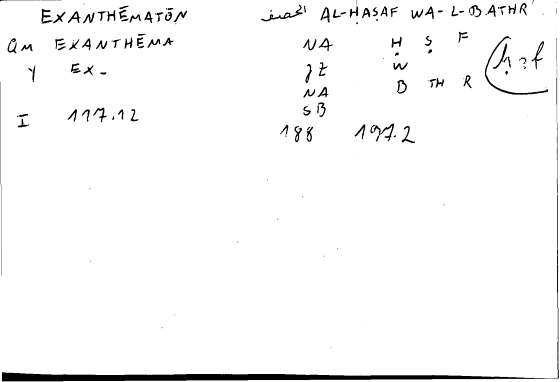 EXANTHĒMATŌN الحصف AL-ḤAṢAF WA-L-BATHR
QM EXANTHĒMA NA Ḥ Ṣ F
Y EX- JZ W
NA B TH R
SB
I 117.12
188 197.2